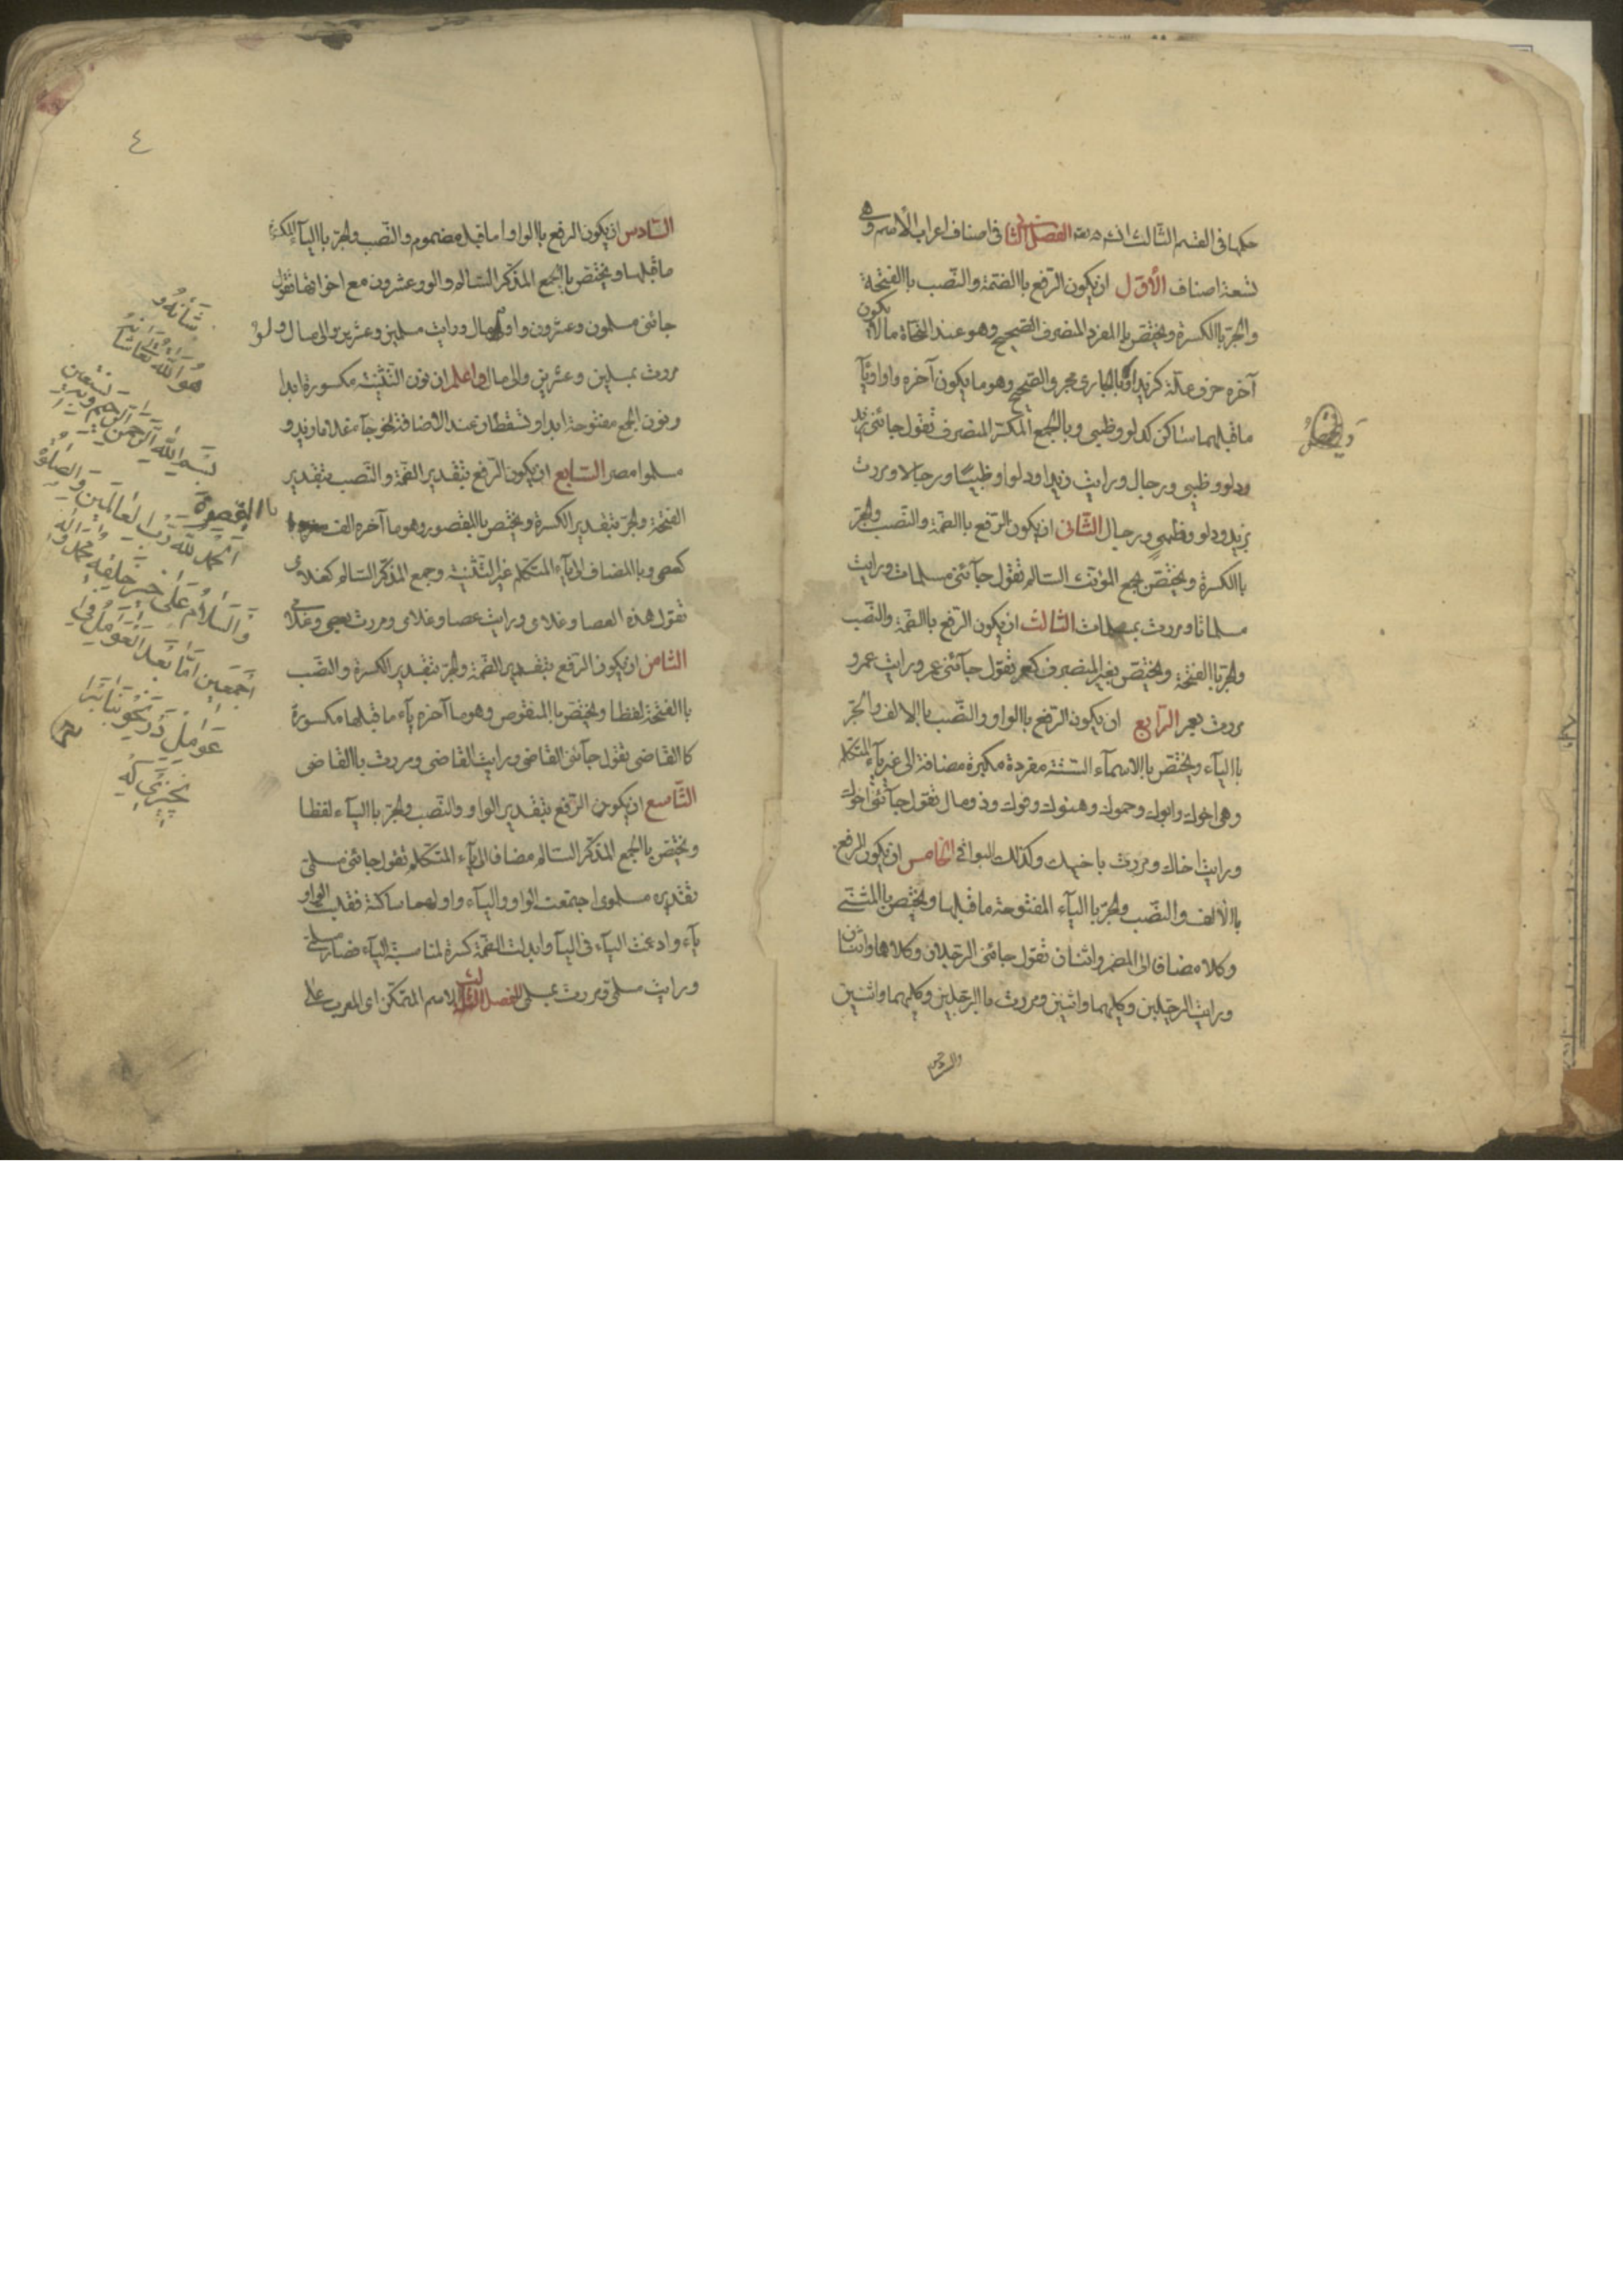 حكمها فى القسم الثالث انشاء الله الفصل الثانى فى اصناف اعراب الأسم وهى
تسعة اصناف الأوّل ان يكون الرّفع باالضّمة والنّصب باالفتحة
والجرّ باالكسرة ويختصّ باالمفرد المنصرف الصّحيح وهو عند النّحاة مالا يكون
آخره حرف علّة كزيد او باالجارى مجرى الصّحيح وهو ما يكون آخره واوا ويآ
ما قبلهما ساكن كدلو وظبى وباالجمع المكسّر المنصرف تقول جائنى زيد
ودلو وظبى ورجال ورايت زيدا ودلوا وظبيًا ورجالا ومررت
بزيد ودلو وظبى ورجال الثّانى ان يكون الرّفع باالضّمة والنّصب والجرّ
باالكسرة ويختصّ بجمع المؤنّث السّالم تقول جآئنى مسلمات ورايت
مسلمات ومررت بمسلمات الثالث ان يكون الرّفع باالضّمة والنّصب
والجرّ باالفتحة ويختصّ بغير المنصرف كعمر تقول جآئنى عمر ورايت عمر و
مررت بعمر الرّابع ان يكون الرّفع باالواو والنّصب باالالف والجرّ
باالياء ويختصّ باالاسمآء السّتّة مفردة مكبرة مضافة الى غير يآء المتكلم
وهى اخوك وابوك وحموك وهنوك وفوك وذو مال تقول جآئنى اخوك
ورايت اخاك ومررت باخيك وكذلك البواقى الخامس ان يكون الرفع
باالألف والنصّب والجرّ باالياء المفتوحة ما قبلها ويختصّ باالمثنّى
وكلا مضافا الى المضمر واثنان تقول جائنى الرّجلان وكلاهما واثنان
ورايت الرّجلين وكليهما واثنين ومررت باالرّجلين وكليهما واثنين
والسّادس
السّادس ان يكون الرفع باالواو اما قبله مضموم والنّصب والجرّ باالياء المكسور
ما قبلها ويختصّ باالجمع المذكّر السّالم والو وعشرون مع اخواتها تقول
جائنى مسلمون وعشرون واولو مال ورايت مسلمين وعشرين والى مال ولو
مررت بمسلمين وعشرين والى مال واعلم ان نون التّثنية مكسورة ابدا
ونون الجمع مفتوحة ابدا وتسقطان عند الاضافة نحو جآء غلاما زيد و
مسلموا مصر السّابع ان يكون الرّفع بتقدير الضّمة والنّصب بتقدير
الفتحة والجرّ بتقدير الكسرة ويختصّ باالمقصور وهو ما آخره الف
كعصى وباالمضاف الى يآء المتكلم غير التّثنية وجمع المذكّر السّالم كغلامى
تقول هذه العصا وغلامى ورايت عصا وغلامى ومررت بعصى وغلامى
الثّامن ان يكون الرّفع بتقدير الضّمة والجرّ بتقدير الكسرة والنصّب
باالفتحة لفظا ويختصّ باالمنقوص وهو ما آخره يآء ما قبلها مكسورة
كاالقاضى تقول جآئنى القاضى ورايت القاضى ومررت باالقاضى
التّاسع ان يكون الرّفع بتقدير الواو والنّصب والجرّ باالياء لفظا
ويختصّ باالجمع المذكّر السّالم مضافا الى يآء المتكلم تقول جائنى مسلمىّ
تقديره مسلموى اجتمعت الواو والياء واولهما ساكنة فقلبت الواو
يآء وادغمت الياء فى اليآ وابدلت الضّمة كسرة لمناسبة الياء فصار مسلمىّ
ورايت مسلمىّ ومررت بمسلمىّ الفصل الثالث الاسم المتمكّن اى المعرب على
٤
هو الله تعالى شأنه
بسم الله الرّحمن الرّحيم وبه نستعين
باالمقصورة
الحمد لله ربّ العالمين والصّلوة
والسّلام على خير خلقه محمّد وآله
اجمعين امّا بعد العوامل فى